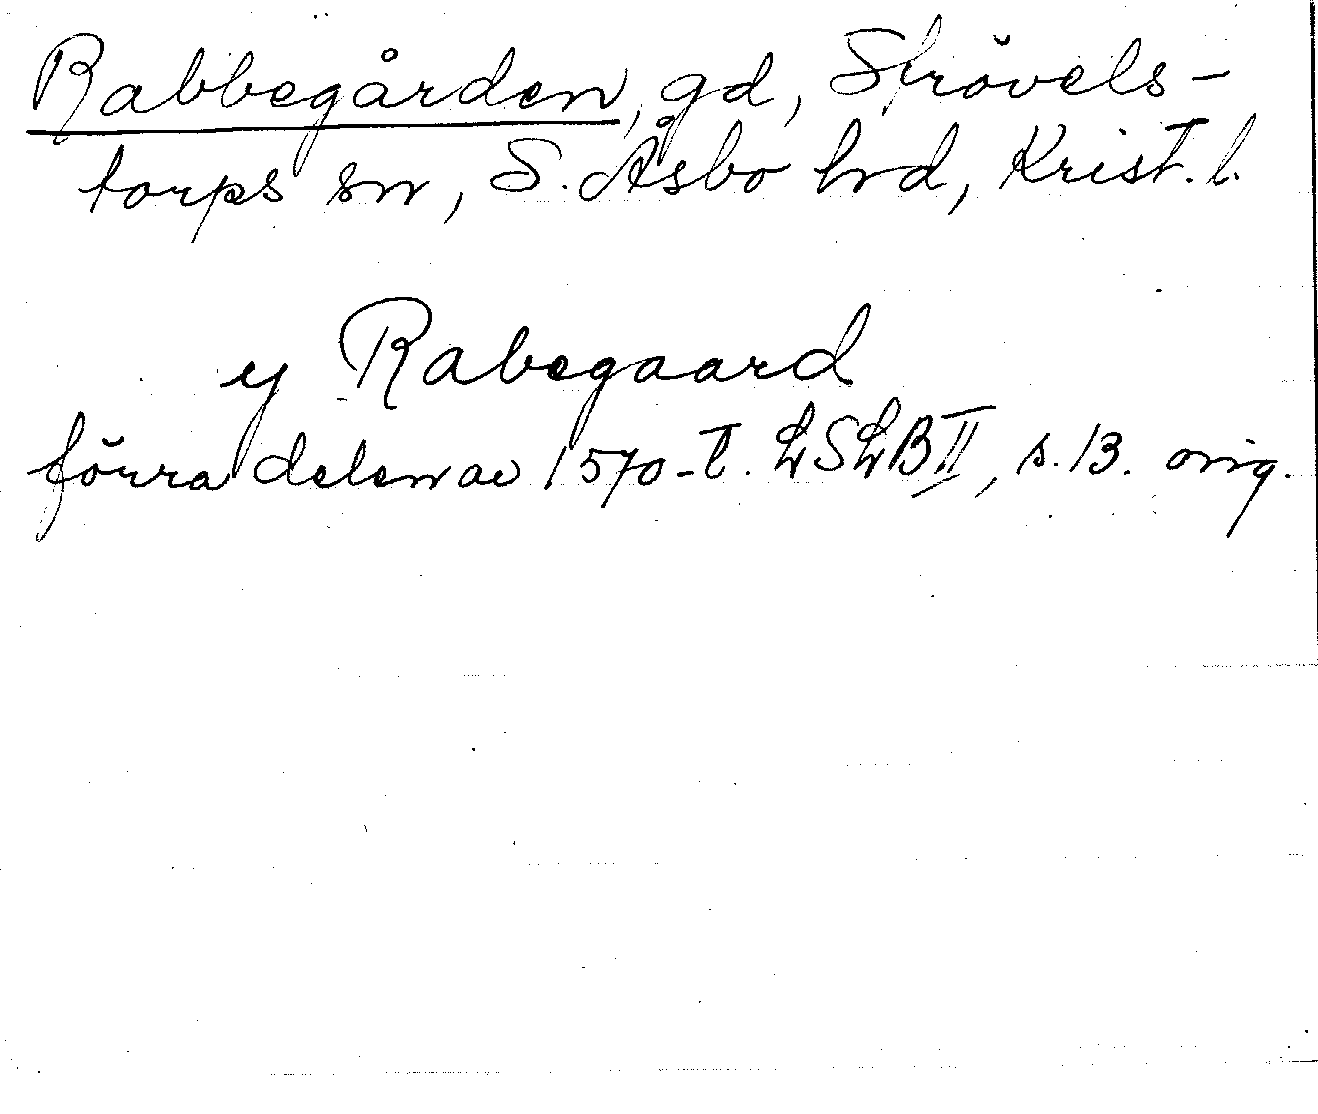 Rabbegården, gd, Strövels-
torps sn, S. Åsbo hrd, Krist. l.
y Rabegaard
förra delen av 1570-t. LSLB II, s. 13. orig.